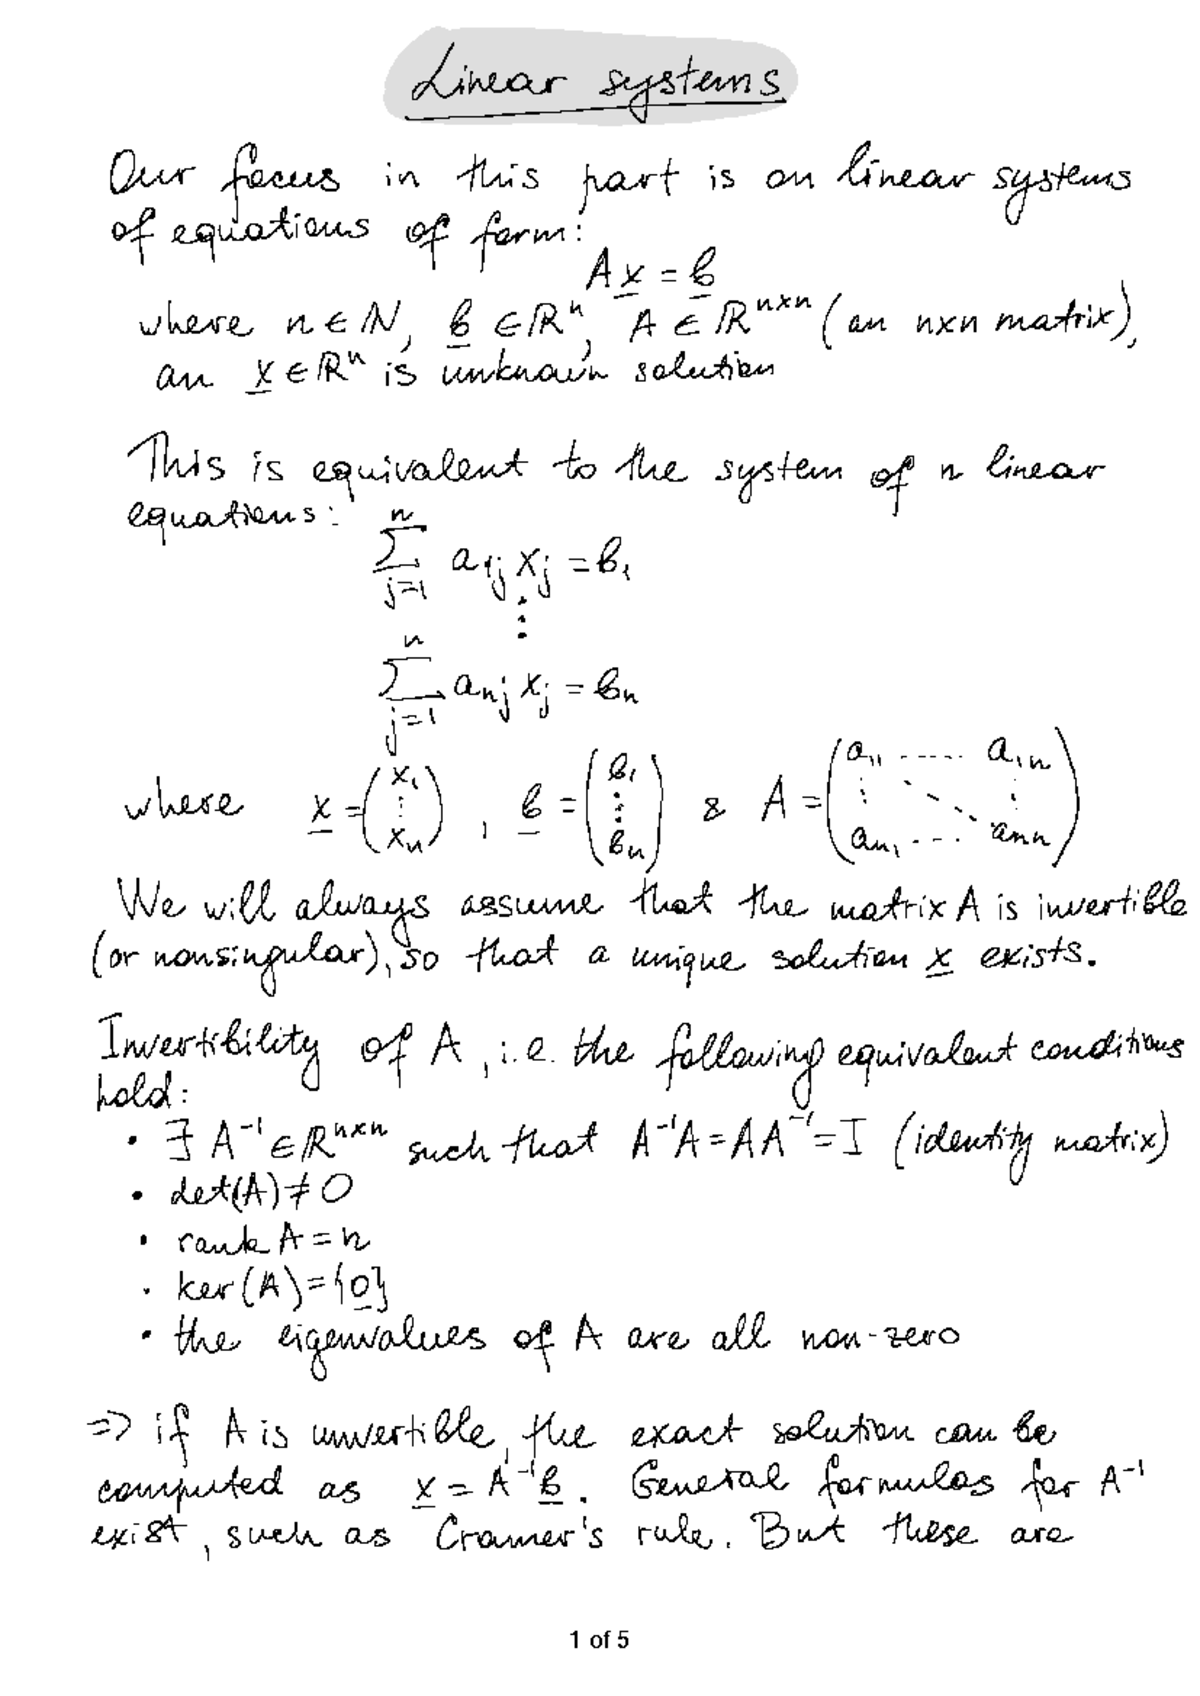 Linear systems
Our focus in this part is on linear systems
of equations of form:
A x̲ = b̲
where n ∈ ℕ, b̲ ∈ ℝⁿ, A ∈ ℝⁿˣⁿ (an n×n matrix),
an x̲ ∈ ℝⁿ is unknown solution
This is equivalent to the system of n linear
equations:
∑_{j=1}^{n} a_{1j} x_j = b_1
⋮
∑_{j=1}^{n} a_{nj} x_j = b_n
where x̲ = (x_1 ⋮ x_n), b̲ = (b_1 ⋮ b_n) & A = (a_{11} ..... a_{1n} ⋮ ⋱ ⋮ a_{n1} .... a_{nn})
We will always assume that the matrix A is invertible
(or nonsingular), so that a unique solution x̲ exists.
Invertibility of A, i.e. the following equivalent conditions
hold:
• ∃ A⁻¹ ∈ ℝⁿˣⁿ such that A⁻¹A = AA⁻¹ = I (identity matrix)
• det(A) ≠ 0
• rank A = n
• ker(A) = {0̲}
• the eigenvalues of A are all non-zero
=> if A is unvertible, the exact solution can be
computed as x̲ = A⁻¹ b̲. General formulas for A⁻¹
exist, such as Cramer's rule. But these are
1 of 5